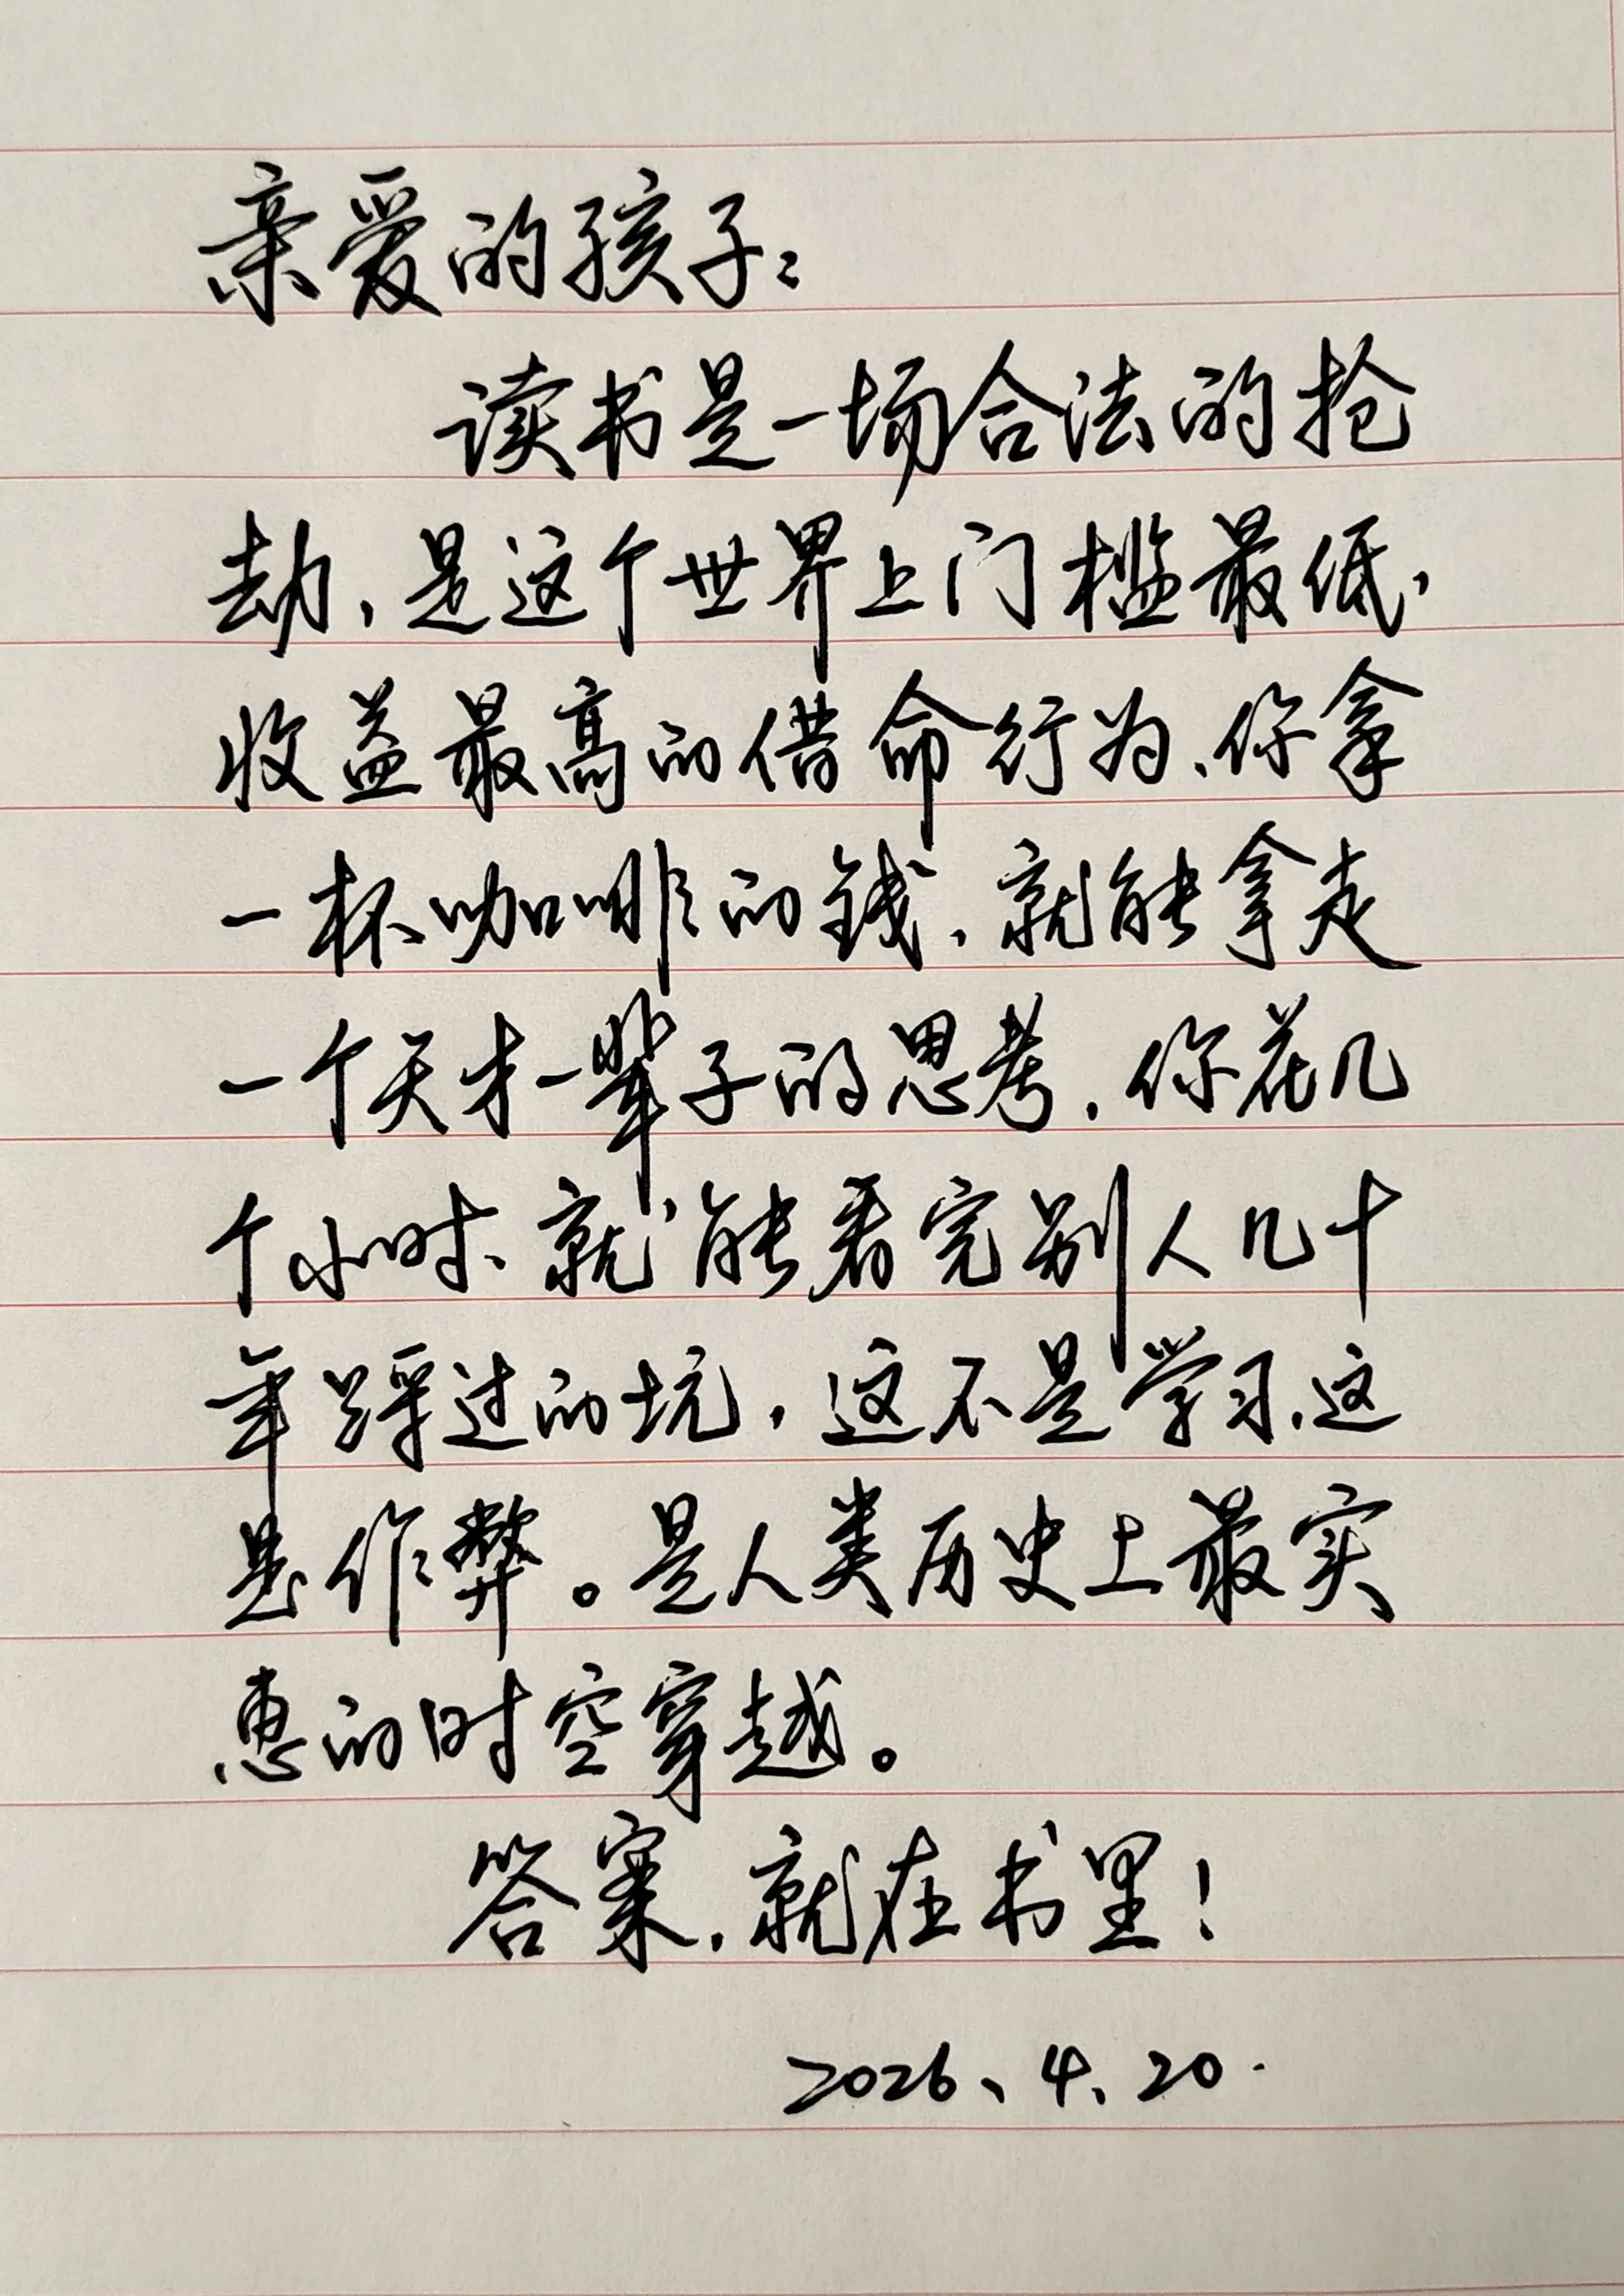 亲爱的孩子：
读书是一场合法的抢
劫，是这个世界上门槛最低，
收益最高的借命行为，你拿
一杯咖啡的钱，就能拿走
一个天才一辈子的思考，你花几
个小时、就能看完别人几十
年踩过的坑，这不是学习，这
是作弊。是人类历史上最实
惠的时空穿越。
答案，就在书里！
2026、4、20.